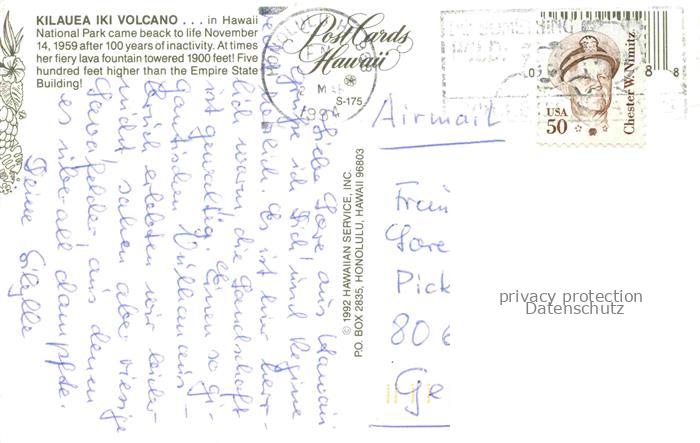 KILAUEA IKI VOLCANO . . . in Hawaii
National Park came beack to life November
14, 1959 after 100 years of inactivity. At times
her fiery lava fountain towered 1900 feet! Five
hundred feet higher than the Empire State
Building!
Post Cards
Hawaii
S-175
MAR
1994
USA
50
Chester W. Nimitz
© 1992 HAWAIIAN SERVICE, INC.
P.O. BOX 2835, HONOLULU, HAWAII 96803
Liebe Lore, aus Hawaii
grüße ich Dich und Regine
herzlich. Es ist hier herr-
lich warm, die Landschaft
ist gewaltig. Einen so gi-
gantischen Vulkanaus-
bruch erlebten wir leider
nicht, sahen aber riesige
Lavafelder, aus denen
es überall dampfte.
Deine Sibylle
Airmail
Frau
Lore
Pick
80
Ge
privacy protection
Datenschutz